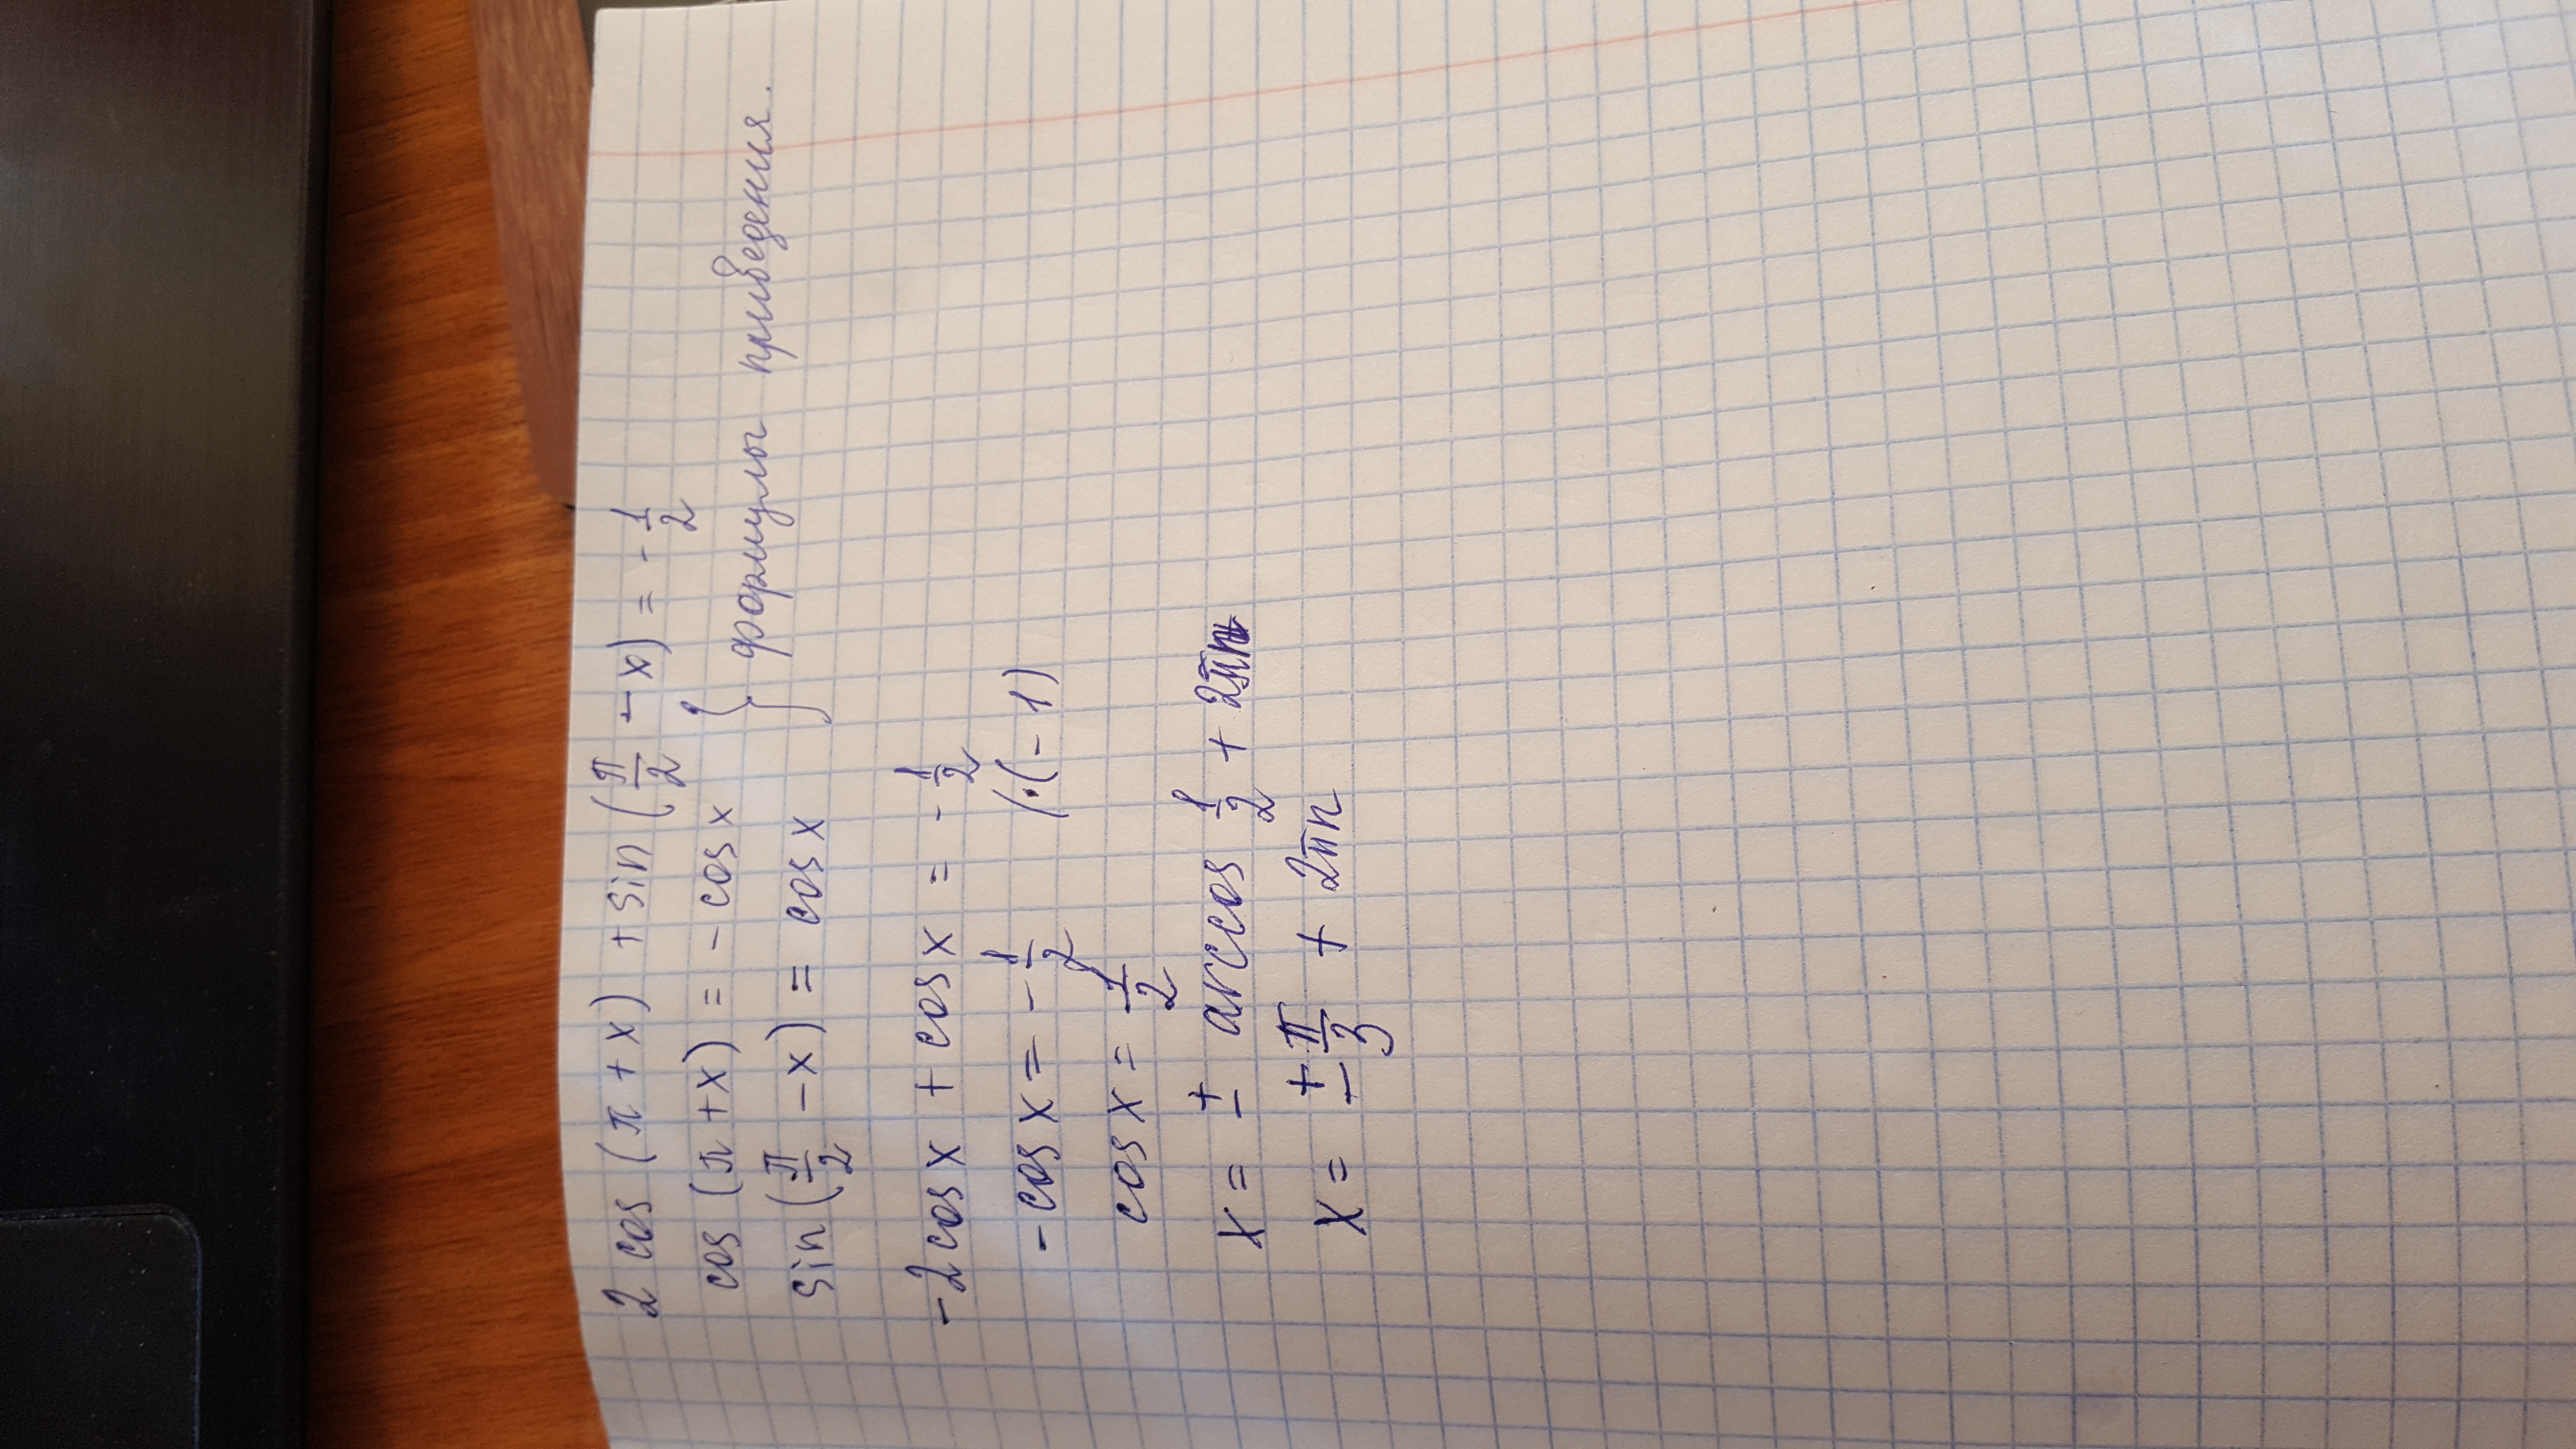 2 cos (π + x) + sin (π/2 - x) = - 1/2
cos (π + x) = - cos x
sin (π/2 - x) = cos x } формулы приведения.
-2 cos x + cos x = - 1/2
- cos x = - 1/2 /·(-1)
cos x = 1/2
x = ± arccos 1/2 + 2πn
x = ± π/3 + 2πn